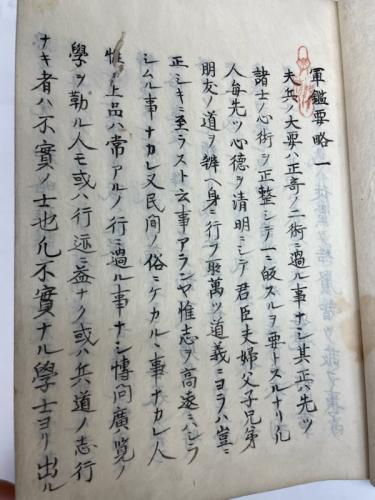 軍鑑要略一
夫兵ノ大要ハ正奇ノ二術ニ過ル事ナシ其正ハ先ツ
諸士ノ心術ヲ正整シテ一ニ皈スルヲ要トスルナリ凡
人毎先ツ心德ヲ清明ニシテ君臣夫婦父子兄弟
朋友ノ道ヲ辨ヘ身ニ行フ所萬ツ道義ニヨラハ豈ニ
正シキニ至ラスト云事アランヤ惟志ヲ高遠ニシテ
シムル事ナカレ又民間ノ俗ニケカルヽ事ナカレ人
惟ノ上品ハ常アルノ行ニ過ル事ナシ博問廣覧ノ
學ヲ勒ル人モ或ハ行迹ニ益ナク或ハ兵道ノ志行
ナキ者ハ不實ノ士也凡不實ナル學士ヨリ出ル